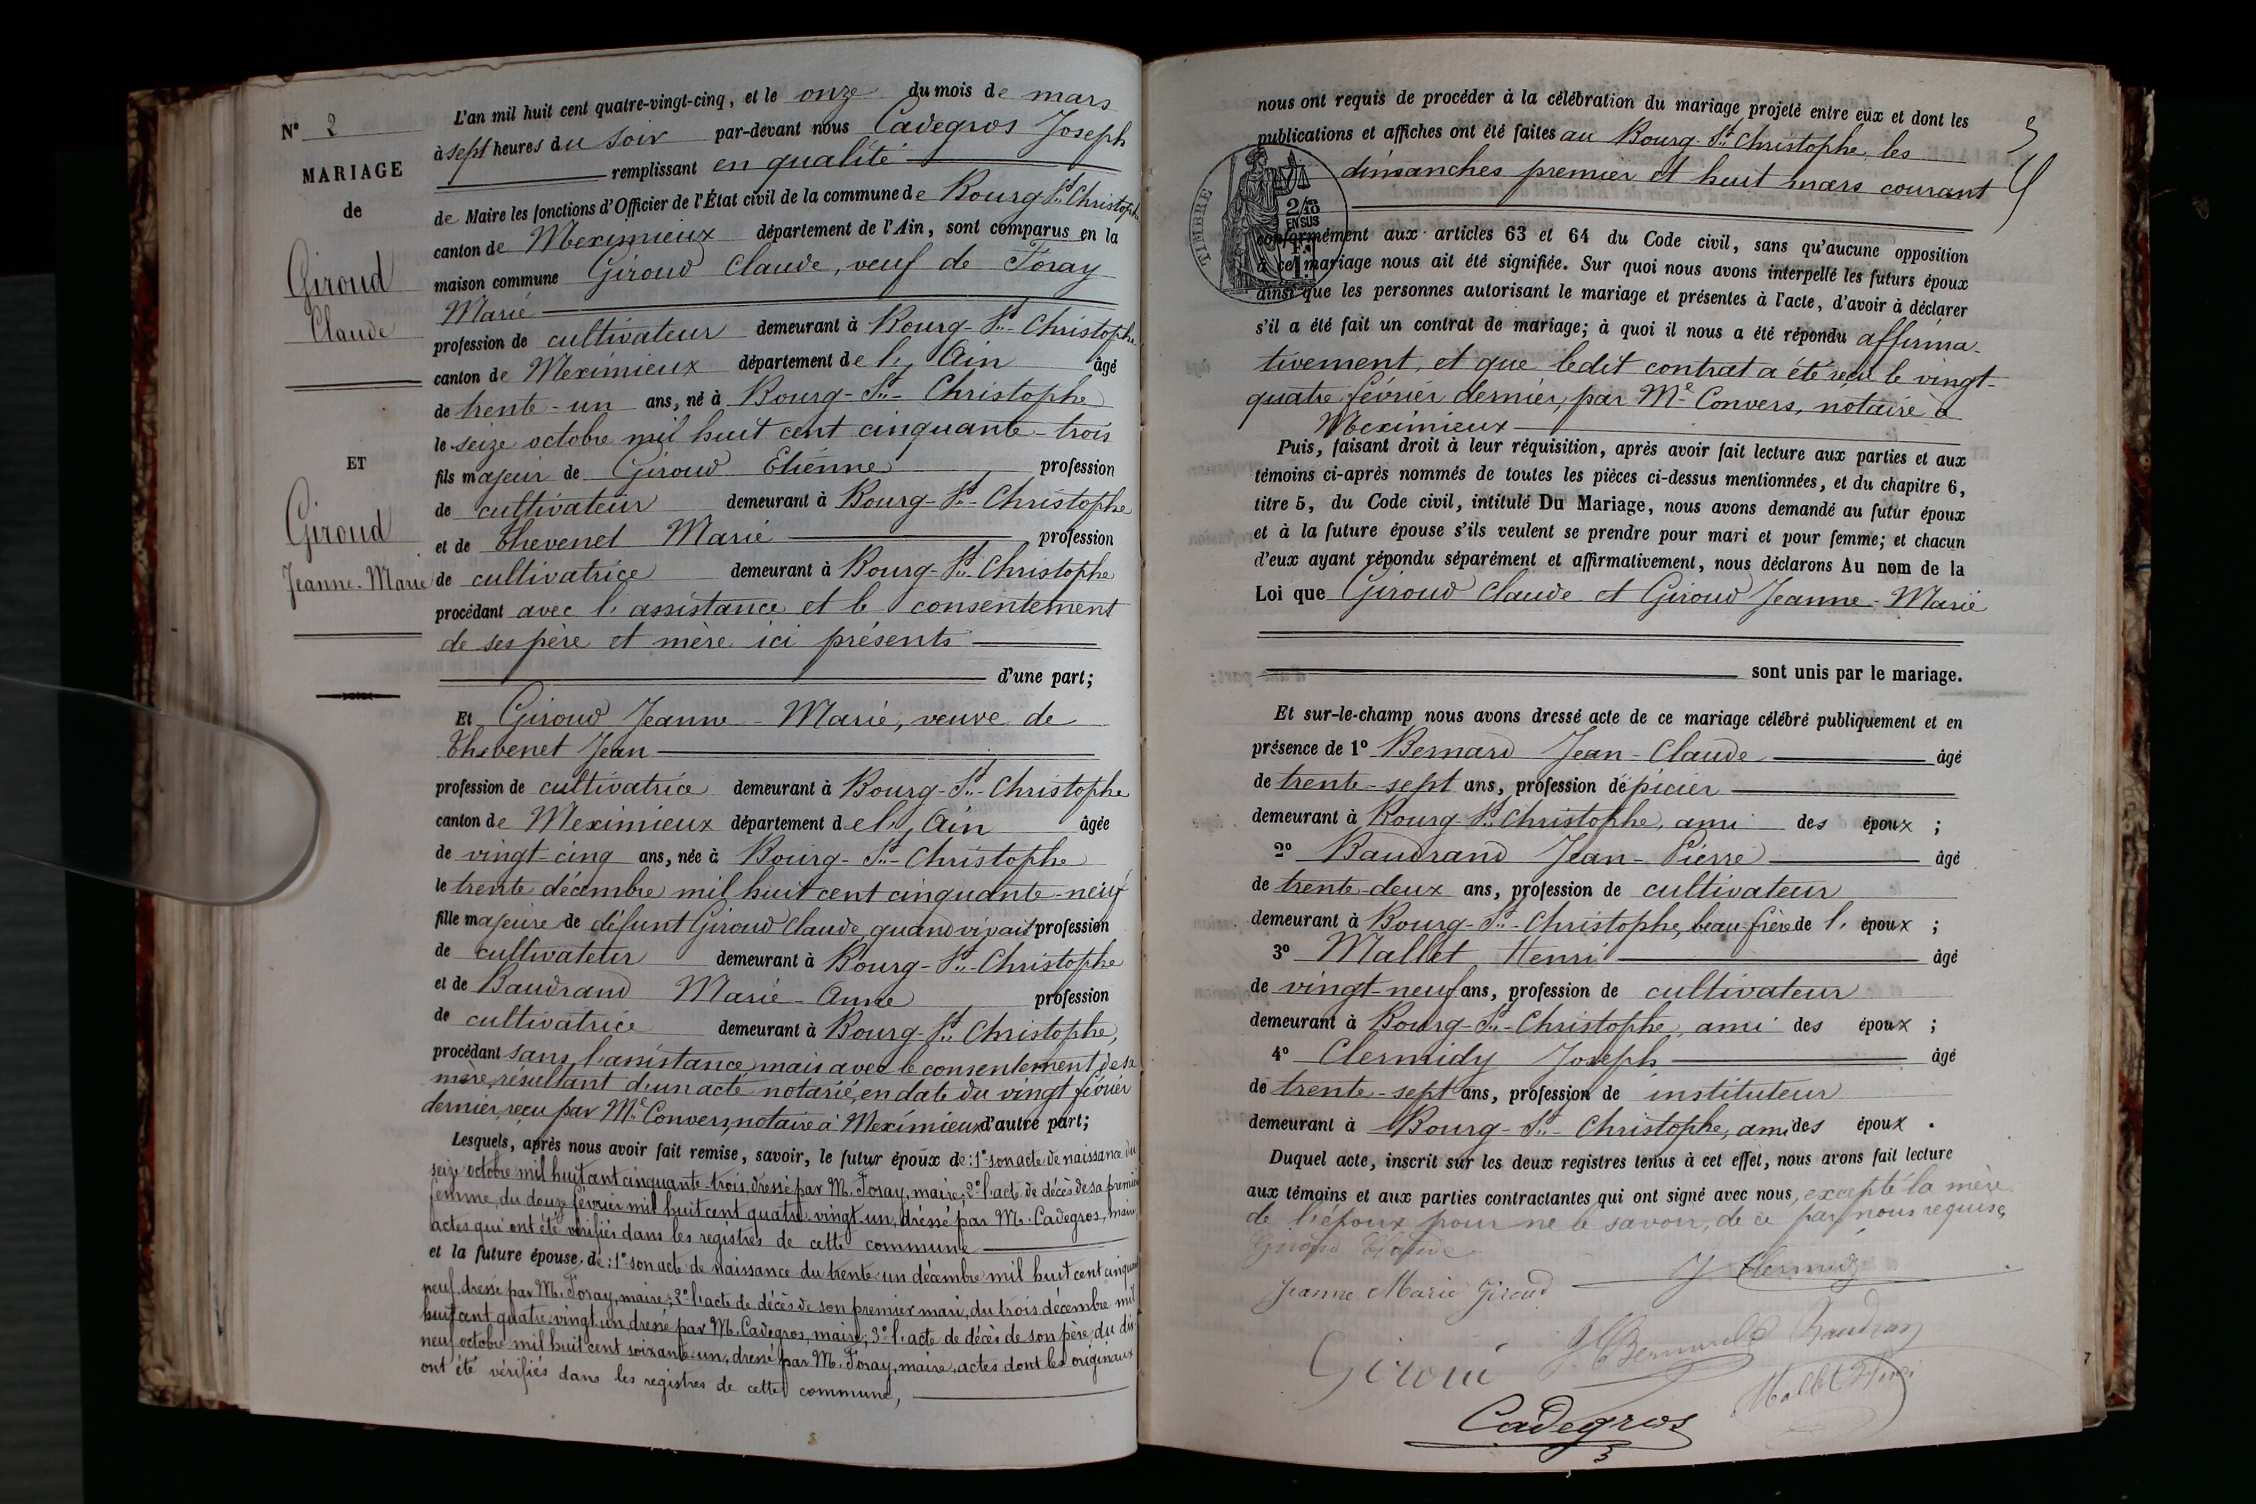 N° 2
MARIAGE
de
Giroud
Claude
ET
Giroud
Jeanne-Marie
L'an mil huit cent quatre-vingt-cinq, et le onze du mois de mars
à sept heures du soir par-devant nous Cadegros Joseph
remplissant en qualité
de Maire les fonctions d'Officier de l'État civil de la commune de Bourg-St-Christophe
canton de Meximieux département de l'Ain, sont comparus en la
maison commune Giroud Claude, veuf de Foray
Marie
profession de cultivateur demeurant à Bourg-St-Christophe
canton de Meximieux département de l'Ain âgé
de trente-un ans, né à Bourg-St-Christophe
le seize octobre mil huit cent cinquante-trois
fils majeur de Giroud Etienne profession
de cultivateur demeurant à Bourg-St-Christophe
et de Thevenet Marie profession
de cultivatrice demeurant à Bourg-St-Christophe
procédant avec l'assistance et le consentement
de ses père et mère ici présents
d'une part;
Et Giroud Jeanne-Marie, veuve de
Thevenet Jean
profession de cultivatrice demeurant à Bourg-St-Christophe
canton de Meximieux département de l'Ain âgée
de vingt-cinq ans, née à Bourg-St-Christophe
le trente décembre mil huit cent cinquante-neuf
fille majeure de défunt Giroud Claude, quand vivait profession
de cultivateur demeurant à Bourg-St-Christophe
et de Baudrand Marie-Anne profession
de cultivatrice demeurant à Bourg-St-Christophe,
procédant sans l'assistance mais avec le consentement de sa
mère, résultant d'un acte notarié, en date du vingt février
dernier, reçu par Me Convers, notaire à Meximieux d'autre part;
Lesquels, après nous avoir fait remise, savoir, le futur époux de: 1° son acte de naissance du
seize octobre mil huit cent cinquante-trois, dressé par M. Foray, maire; 2° l'acte de décès de sa première
femme, du douze février mil huit cent quatre-vingt-un, dressé par M. Cadegros, maire,
actes qui ont été vérifiés dans les registres de cette commune
et la future épouse, de: 1° son acte de naissance du trente-un décembre mil huit cent cinquante
neuf dressé par M. Foray, maire; 2° l'acte de décès de son premier mari, du trois décembre mil
huit cent quatre-vingt-un, dressé par M. Cadegros, maire; 3° l'acte de décès de son père, du dix-
neuf octobre mil huit cent soixante-un, dressé par M. Foray, maire, actes dont les originaux
ont été vérifiés dans les registres de cette commune,
nous ont requis de procéder à la célébration du mariage projeté entre eux et dont les
publications et affiches ont été faites au Bourg-St-Christophe, les
dimanches premier et huit mars courant
TIMBRE
2/10
EN SUS
conformément aux articles 63 et 64 du Code civil, sans qu'aucune opposition
à ce mariage nous ait été signifiée. Sur quoi nous avons interpellé les futurs époux
ainsi que les personnes autorisant le mariage et présentes à l'acte, d'avoir à déclarer
s'il a été fait un contrat de mariage; à quoi il nous a été répondu affirma-
tivement, et que ledit contrat a été reçu le vingt-
quatre février dernier, par Me Convers, notaire à
Meximieux
Puis, faisant droit à leur réquisition, après avoir fait lecture aux parties et aux
témoins ci-après nommés de toutes les pièces ci-dessus mentionnées, et du chapitre 6,
titre 5, du Code civil, intitulé Du Mariage, nous avons demandé au futur époux
et à la future épouse s'ils veulent se prendre pour mari et pour femme; et chacun
d'eux ayant répondu séparément et affirmativement, nous déclarons Au nom de la
Loi que Giroud Claude et Giroud Jeanne-Marie
sont unis par le mariage.
Et sur-le-champ nous avons dressé acte de ce mariage célébré publiquement et en
présence de 1° Bernard Jean-Claude âgé
de trente-sept ans, profession d'épicier
demeurant à Bourg-St-Christophe, ami des époux ;
2° Baudrand Jean-Pierre âgé
de trente-deux ans, profession de cultivateur
demeurant à Bourg-St-Christophe, beau-frère de l'époux ;
3° Mallet Henri âgé
de vingt-neuf ans, profession de cultivateur
demeurant à Bourg-St-Christophe, ami des époux ;
4° Clermidy Joseph âgé
de trente-sept ans, profession de instituteur
demeurant à Bourg-St-Christophe, ami des époux .
Duquel acte, inscrit sur les deux registres tenus à cet effet, nous avons fait lecture
aux témoins et aux parties contractantes qui ont signé avec nous, excepté la mère
de l'époux pour ne le savoir, de ce par nous requise
Giroud Claude
J Clermidy
Jeanne Marie Giroud
Baudran
Mallet Henri
Cadegros